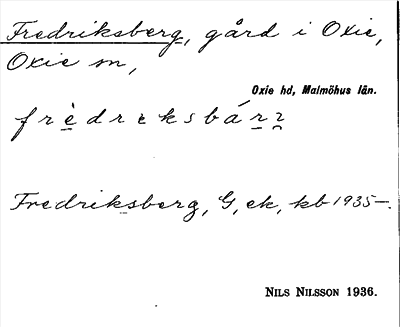 Fredriksberg, gård i Oxie,
Oxie sn,
Oxie hd, Malmöhus län.
frèdrɛksbárɂ
Fredriksberg, G, ek, kb 1935—.
NILS NILSSON 1936.